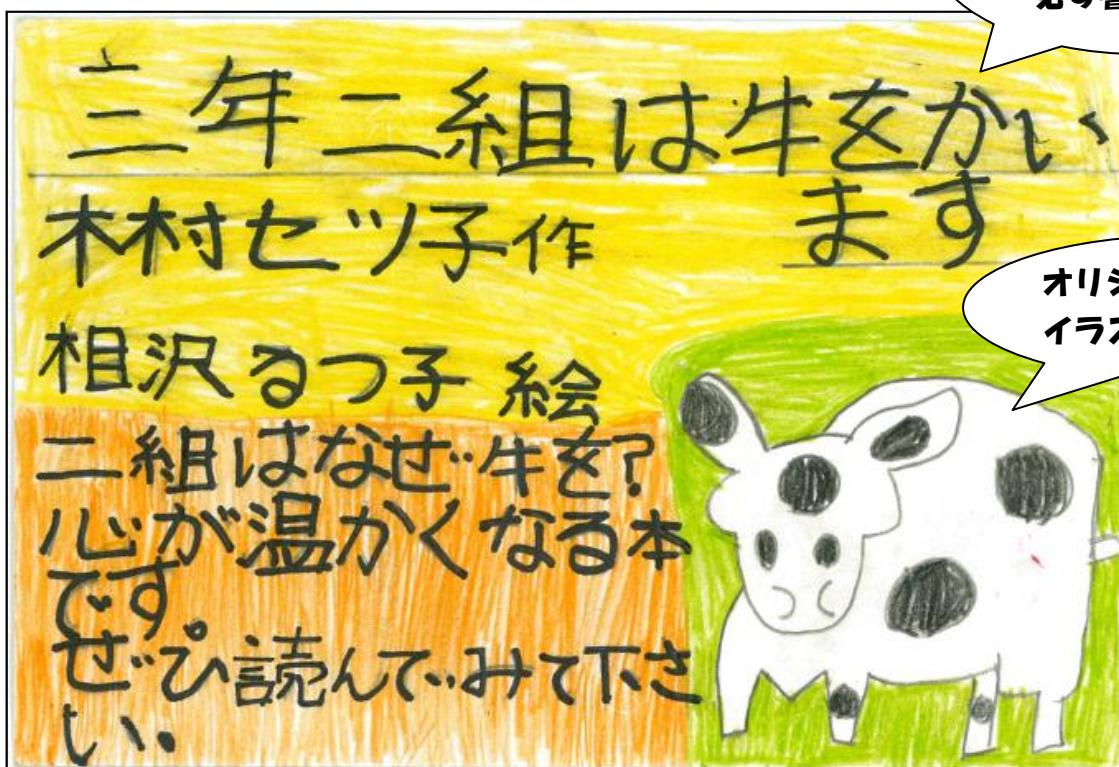 三年二組は牛をかい
ます
木村セツ子作
相沢るつ子 絵
二組はなぜ牛を?
心が温かくなる本
です。
ぜひ読んでみて下さ
い。
オリジ
イラス